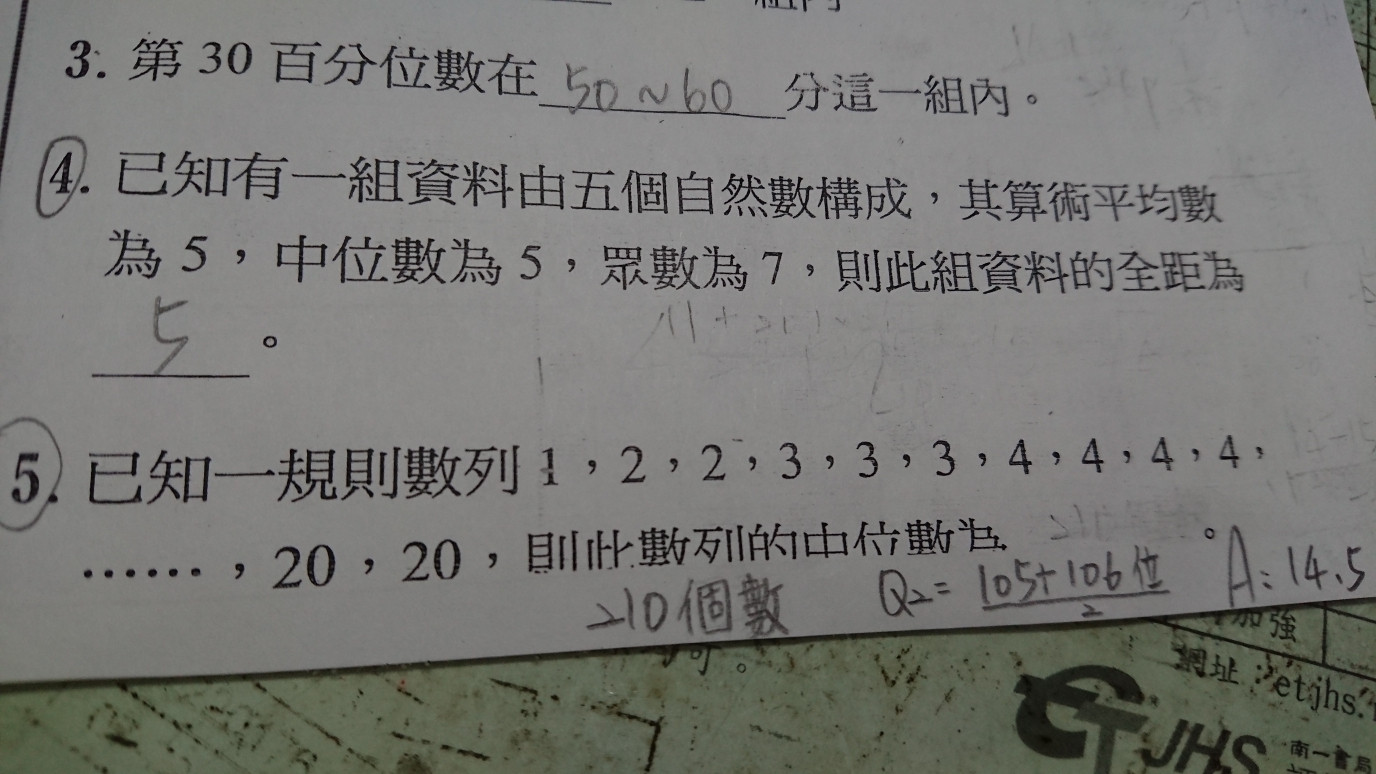 3. 第 30 百分位數在 50~60 分這一組內。
4. 已知有一組資料由五個自然數構成，其算術平均數
為 5，中位數為 5，眾數為 7，則此組資料的全距為
5 。
5. 已知一規則數列 1，2，2，3，3，3，4，4，4，4，
……，20，20，則此數列的中位數為 。
210個數 Q2= 105+106位/2 A: 14.5
加強
網址：etjhs.
JHS 南一書局